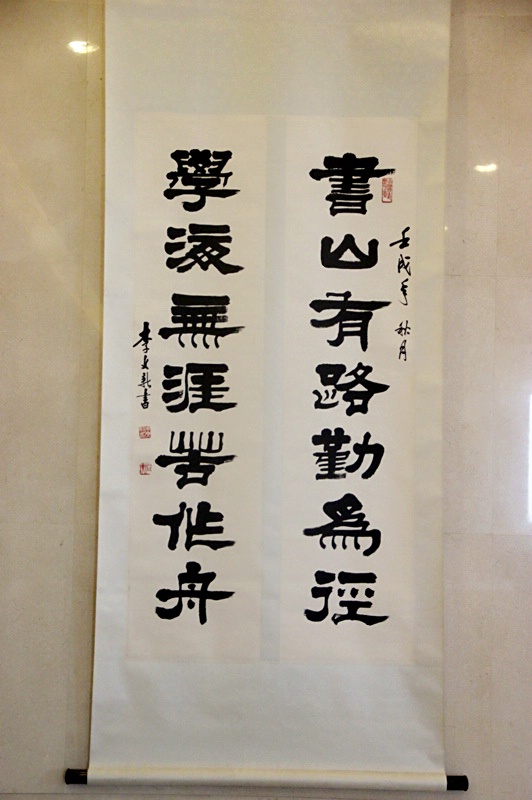 書山有路勤為徑
壬戌年 秋月
學海無涯苦作舟
李文新書